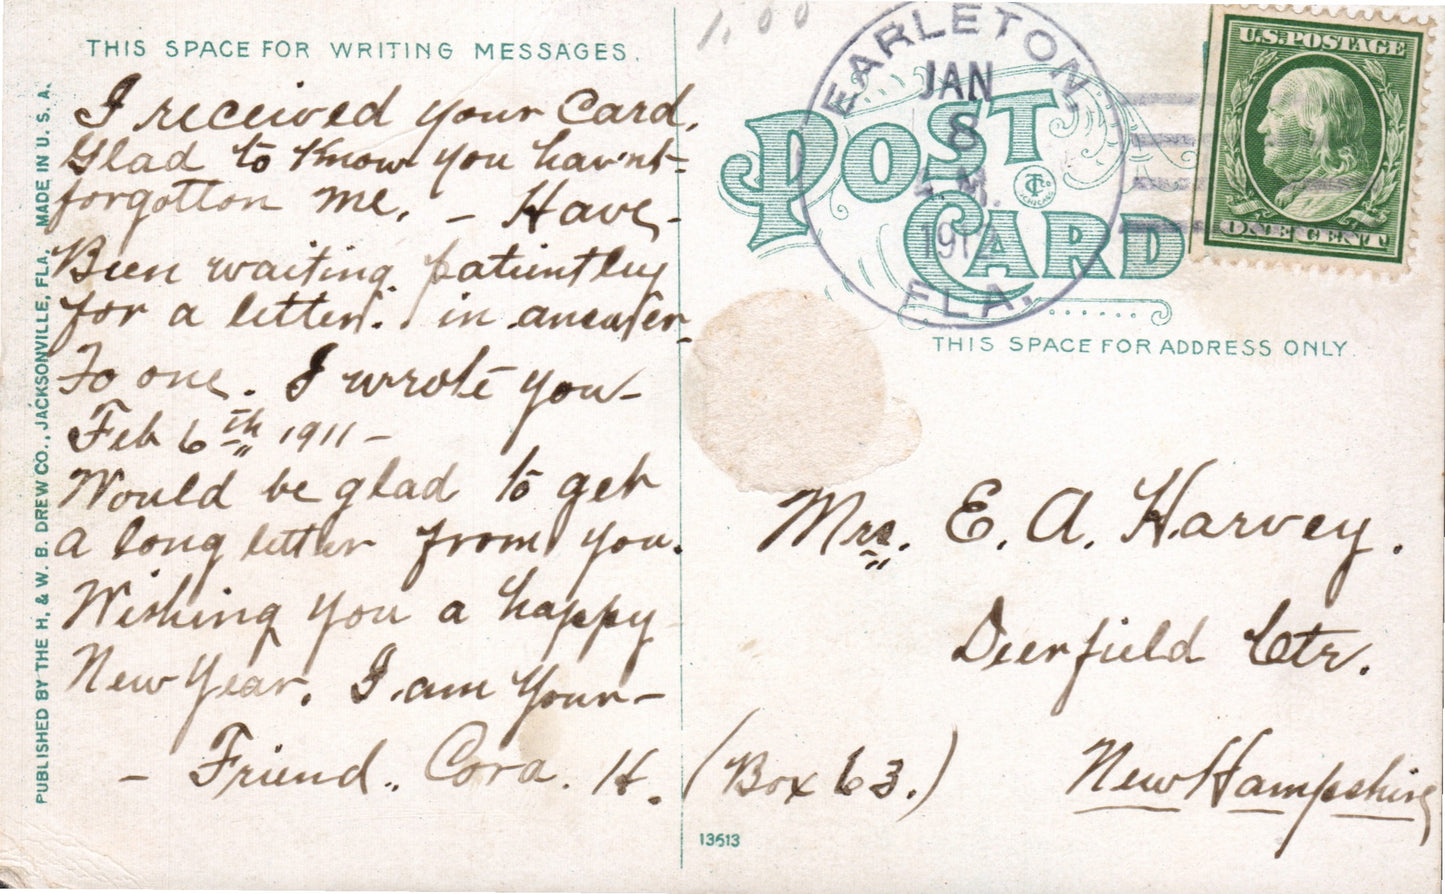 THIS SPACE FOR WRITING MESSAGES.
I received your Card.
Glad to Know you hav'nt-
forgotton me. - Have-
Been waiting patiently
for a letter. in answer
To one. I wrote you-
Feb 6th 1911-
Would be glad to get
a long letter from you.
Wishing you a happy
New Year. I am Your-
- Friend.. Cora. H.
(Box 63.)
PUBLISHED BY THE H. & W. B. DREW CO., JACKSONVILLE, FLA. MADE IN U. S. A.
1.00
EARLETON,
JAN
8
1912
FLA.
POST
CARD
U.S. POSTAGE
ONE CENT
THIS SPACE FOR ADDRESS ONLY.
Mrs. E. A. Harvey.
Deerfield Ctr.
New Hampshire
13513